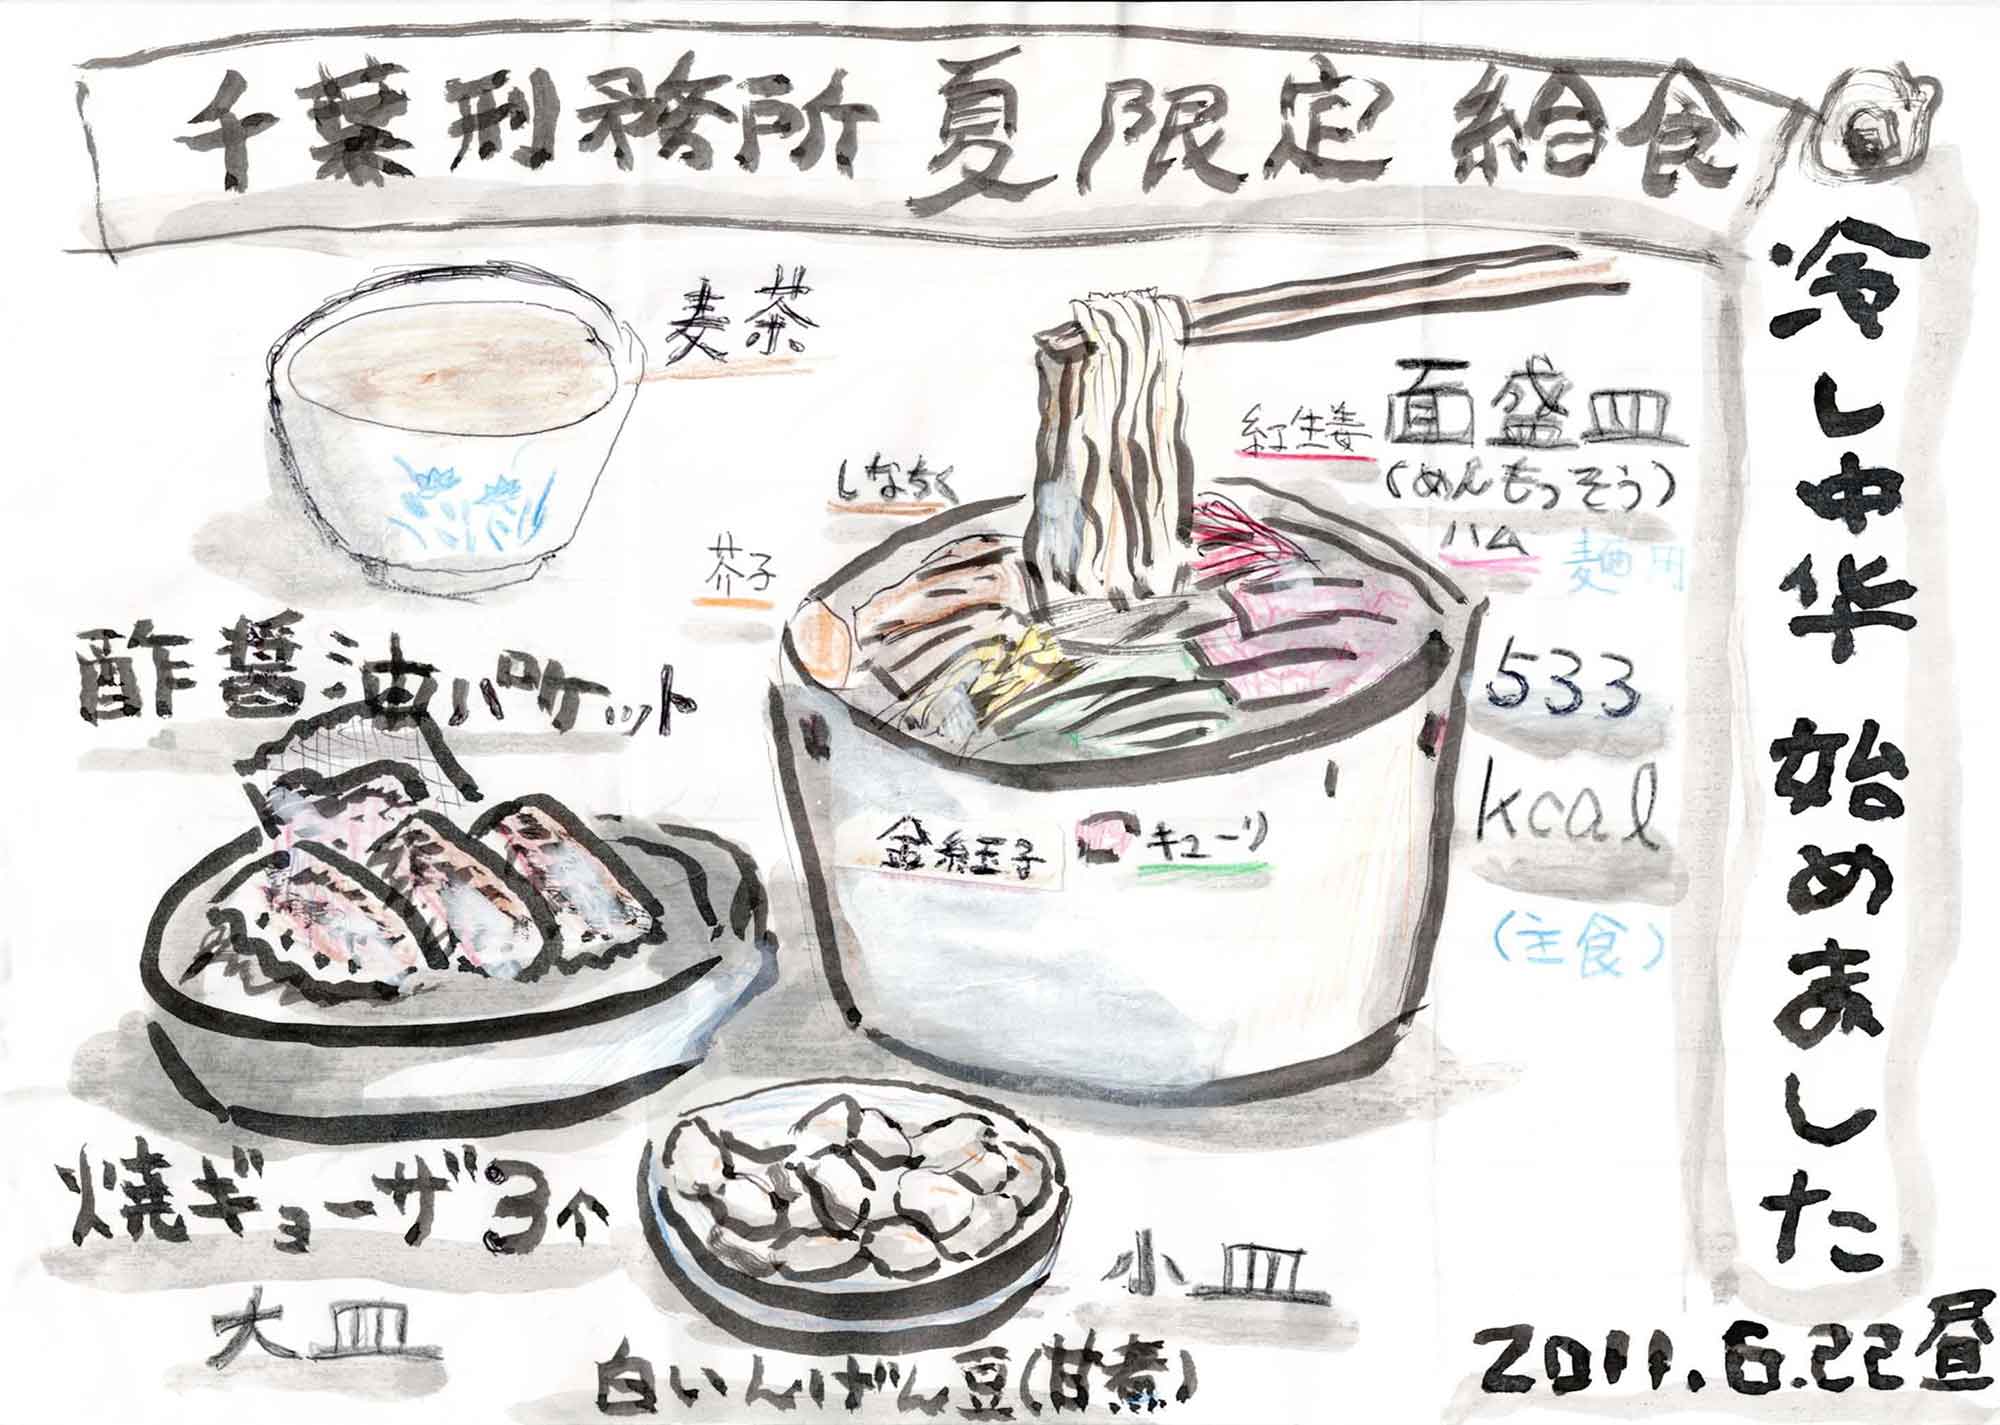 千葉刑務所 夏限定 給食
冷し中华 始めました
麦茶
面盛皿
(めんもっそう)
紅生姜
しなちく
ハム
麺用
芥子
酢醤油パケット
533
kcal
(主食)
金糸玉子
キューリ
焼ギョーザ3个
大皿
小皿
白いんげん豆(甘煮)
2011.6.22昼